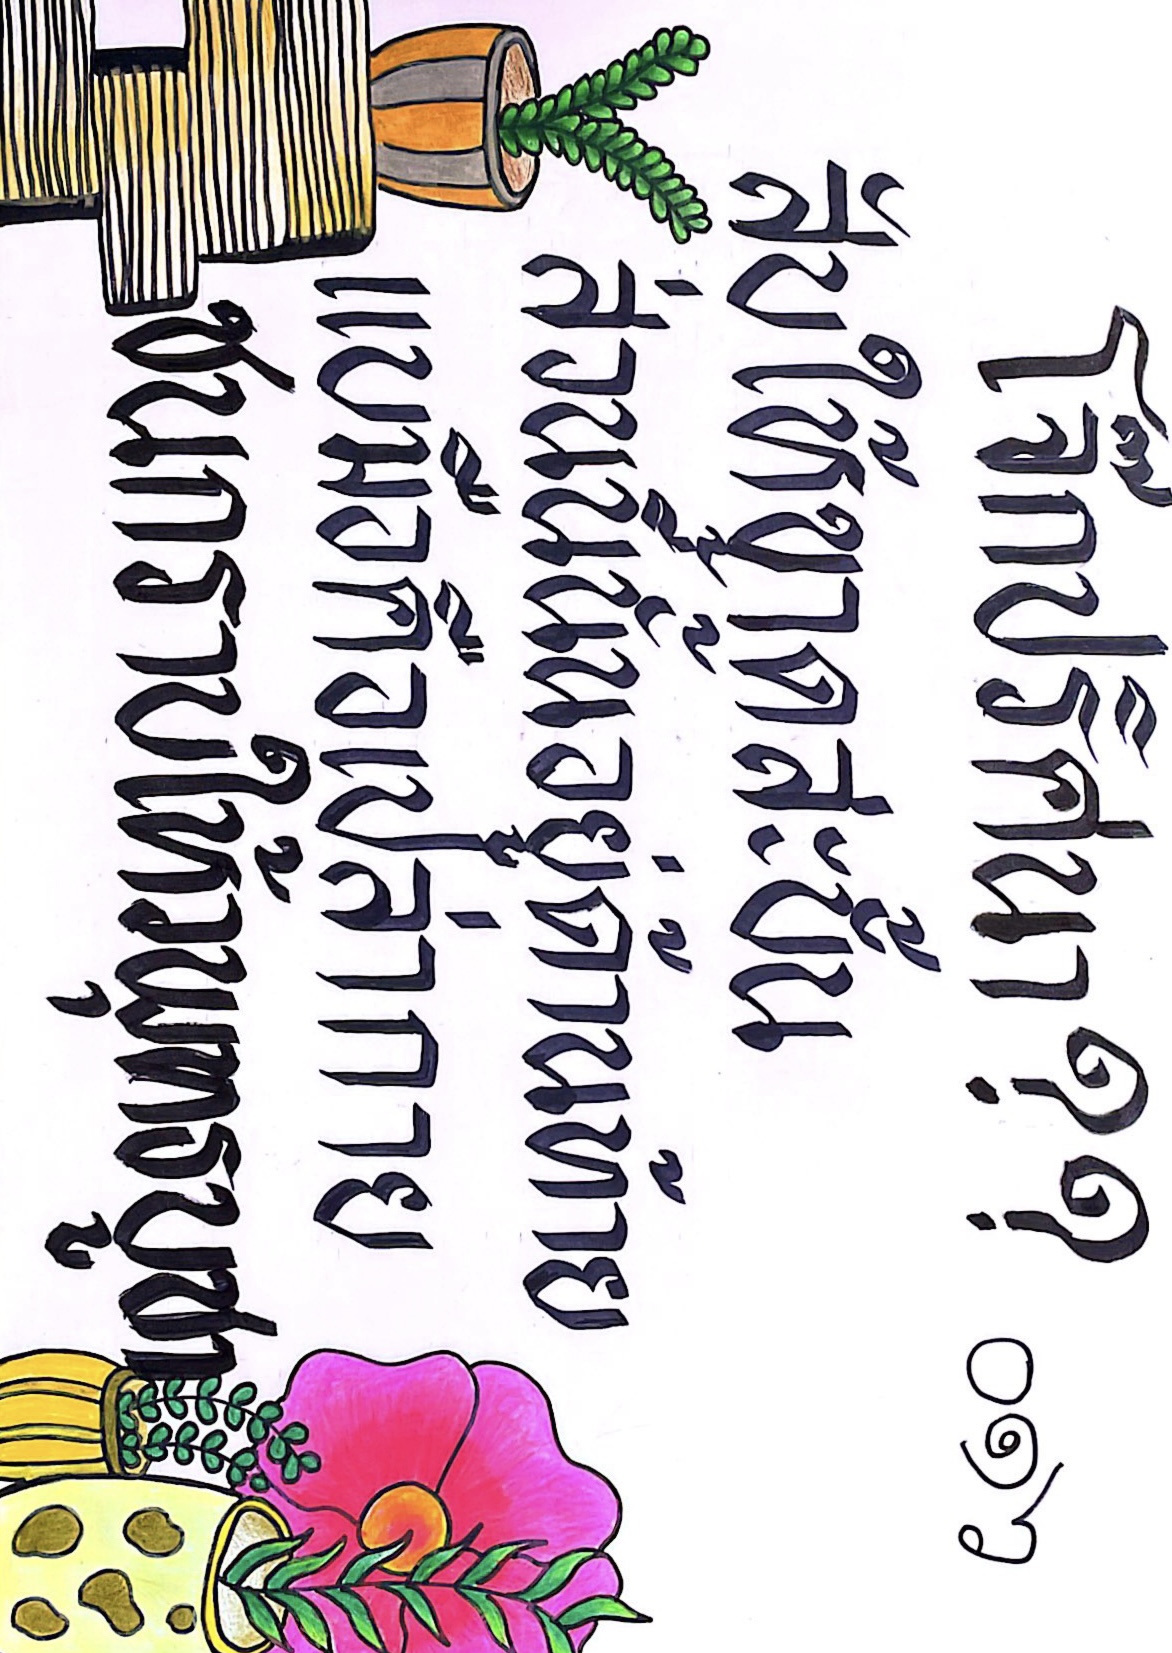 โจ๊กปริศนา ?? ๐๑๖
สับให้ขาดสะบั้น
ส่วนนี้นั้นอยู่ด้านท้าย
แบมือคือเปล่ากาย
ชนกราบไหว้พุทธบูชา